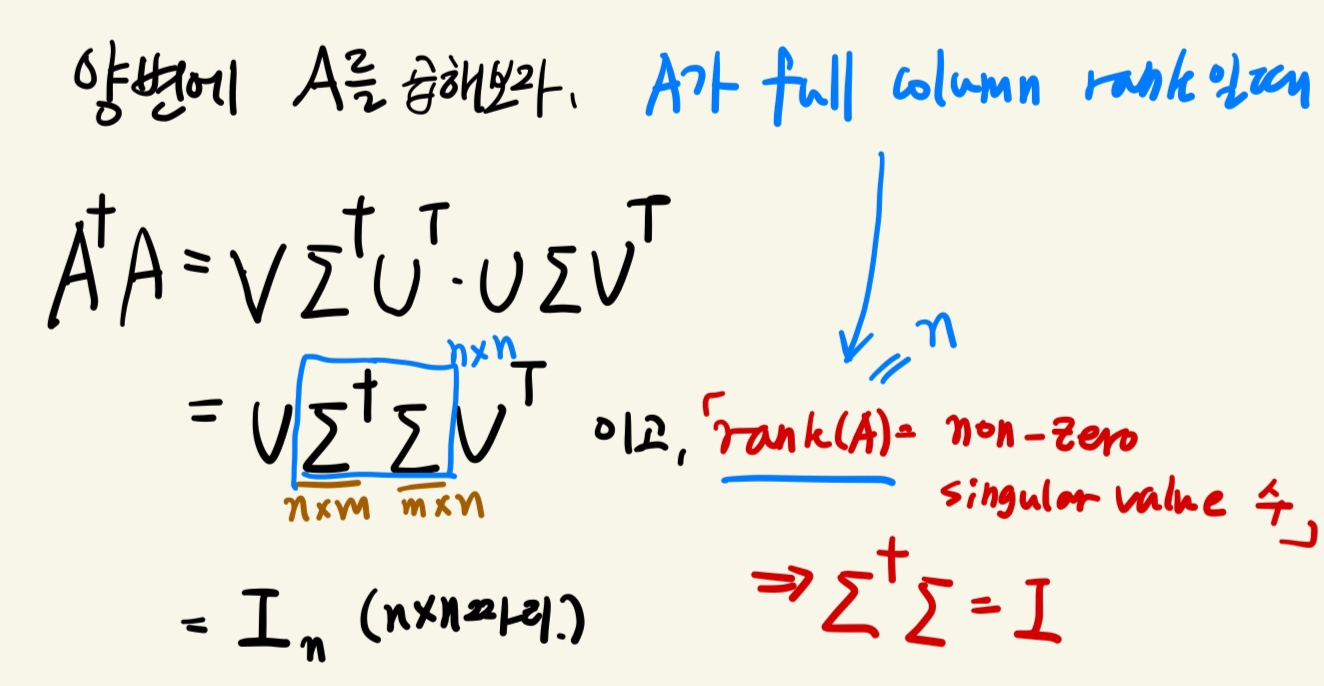 양변에 A를 곱해보자. A가 full column rank일때
A†A = VΣ†Uᵀ·UΣVᵀ
n×n
= VΣ†ΣVᵀ 이고, 「rank(A) = non-zero
n
n×m m×n singular value 수」
⇒ Σ†Σ = I
= Iₙ (n×n짜리.)